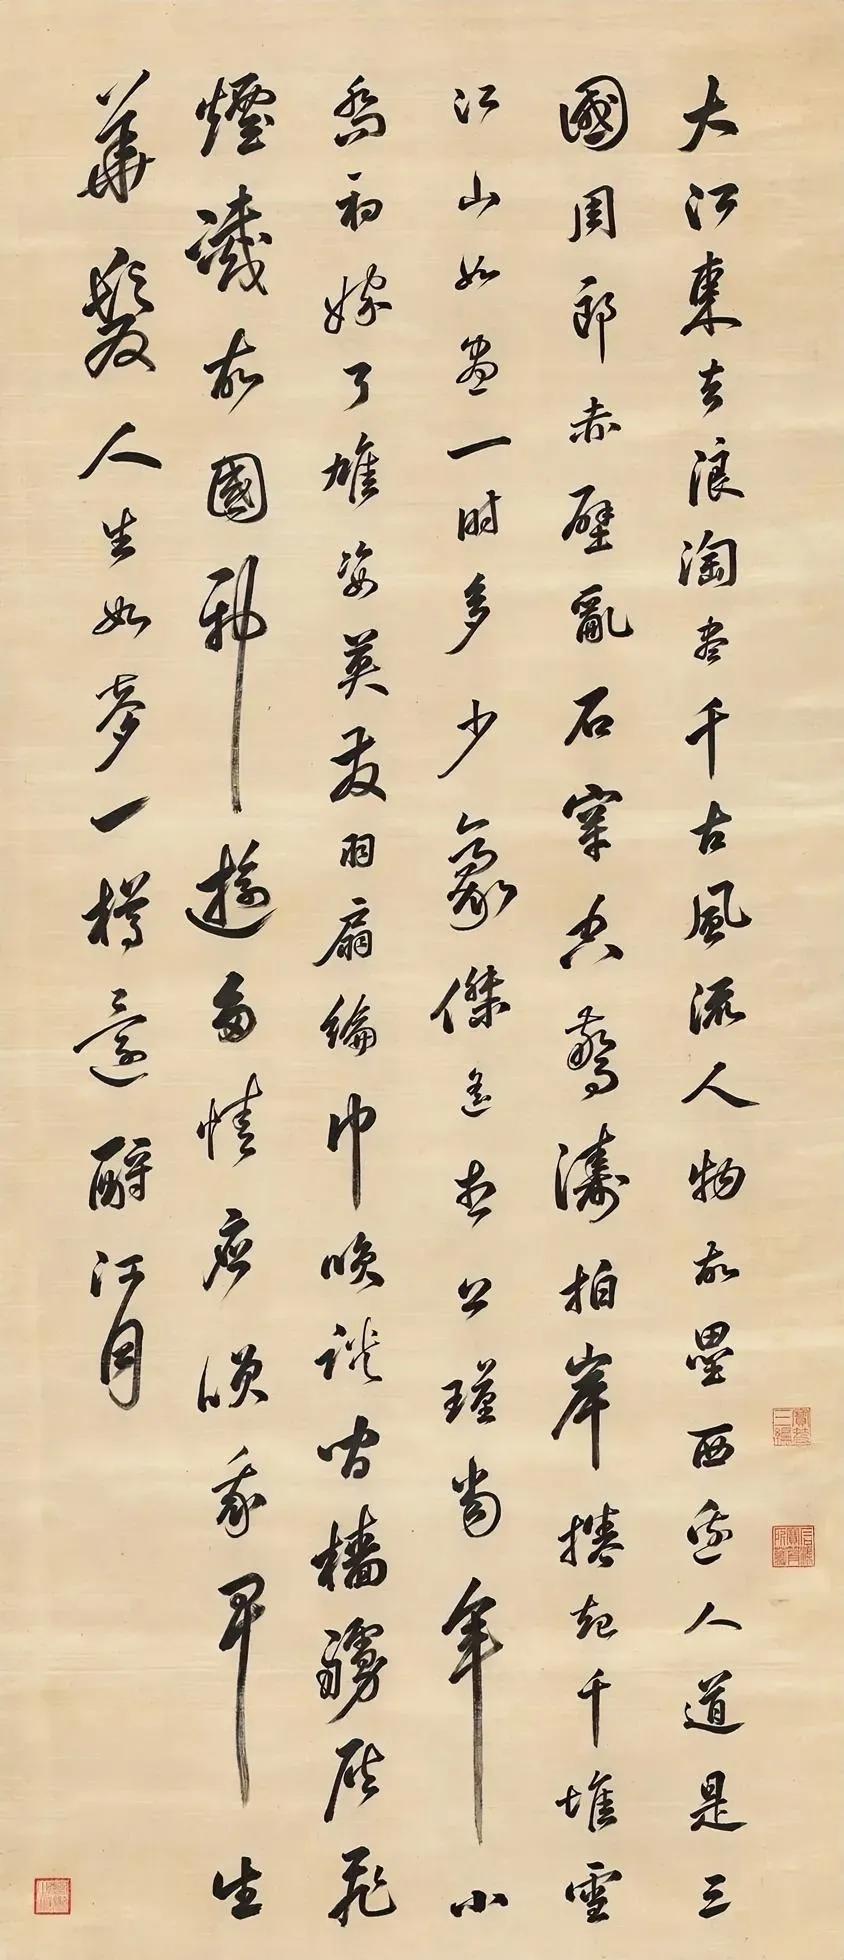 大江東去浪淘盡千古風流人物故壘西邊人道是三
國周郎赤壁亂石穿空驚濤拍岸捲起千堆雪
江山如畫一時多少豪傑遙想公瑾當年小
喬初嫁了雄姿英發羽扇綸巾咲談間檣艣灰飛
煙滅故國神遊多情應咲我早生
華髮人生如夢一樽還酹江月